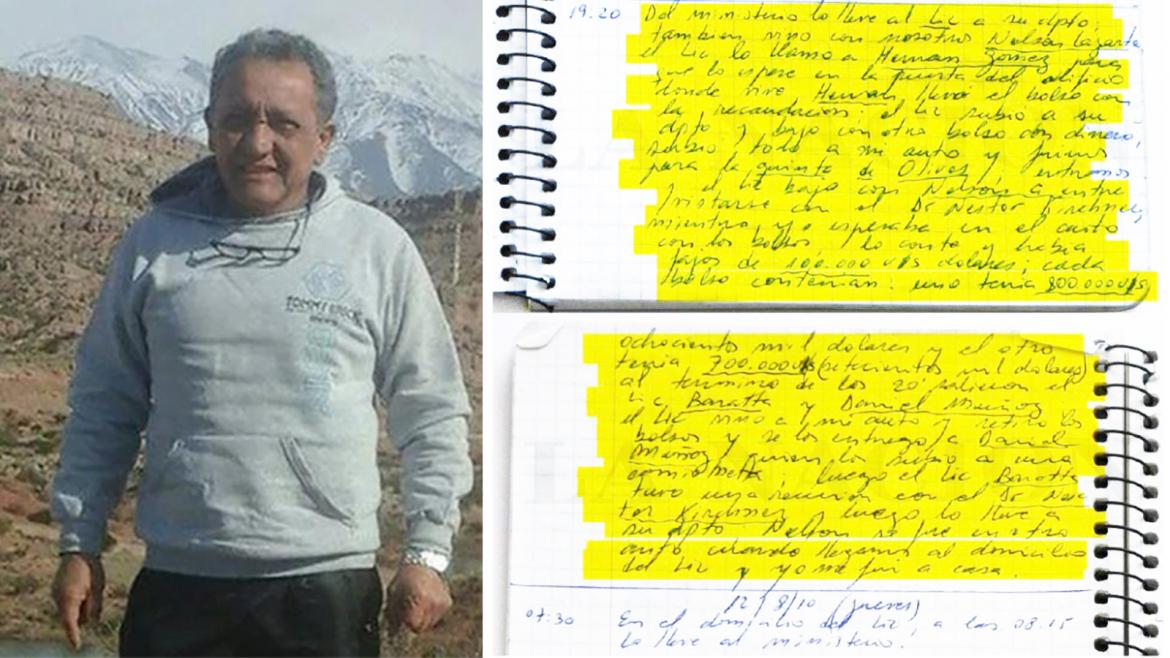 TOMMY BROCK
19:20 Del ministerio lo lleve al Lic a su dpto,
tambien vino con nosotros Nelson Lazarte,
el Lic lo llamo a Hernan Gomez para
que lo espere en la puerta del edificio
donde vive Hernan llevó el bolso con
la recaudacion: el Lic subio a su
dpto y bajo con otro bolso con dinero,
subio todo a mi auto y fuimos
para la quinta de Olivos, entramos
el Lic bajo con Nelson a entre
vistarse con el Dr Nestor Kirchner,
mientras yo esperaba en el auto
con los bolsos, lo conte y habia
fajos de 100.000 U$S dolares; cada
bolso contenian: uno tenia 800.000 U$S
ochociento mil dolares y el otro
tenia 700.000 U$S (setecientos mil dolares)
al termino de los 20' salieron el
Lic Baratta y Daniel Muñoz
el Lic vino a mi auto y retiro los
bolsos y se los entrego a Daniel
Muñoz, quien los subio a una
camioneta, luego el Lic Baratta
tuvo una reunion con el Dr Nes
tor Kirchner y luego lo lleve a
su dpto Nelson se fue en otro
auto, cuando llegamos al domicilio
del Lic y yo me fui a casa.
12/8/10 (jueves)
07:30 En el domicilio del Lic, a las 08.15
lo lleve al ministerio.